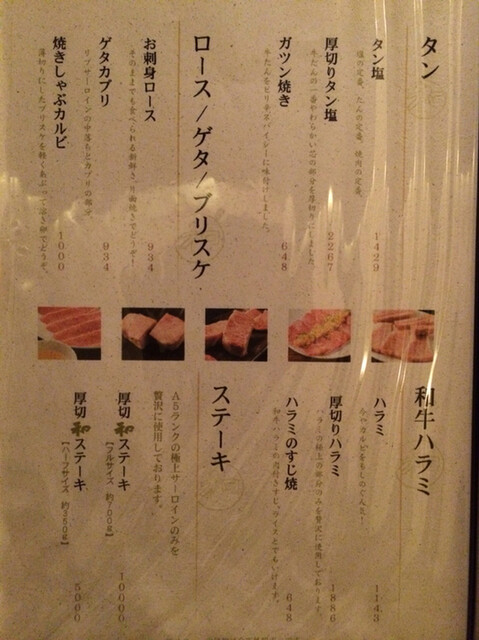 タン
タン塩
塩の定番、たんの定番、焼肉の定番。
1429
厚切りタン塩
牛たんの一番やわらかい芯の部分を厚切りにしました。
2267
ガツン焼き
牛たんをピリ辛スパイシーに味付けしました。
648
ロース/ゲタ/ブリスケ
お刺身ロース
そのままでも食べられる新鮮さ。片面焼きでどうぞ!
934
ゲタカブリ
リブサーロインの中落ちとカブリの部分。
934
焼きしゃぶカルビ
薄切りにしたブリスケを軽くあぶって溶き卵でどうぞ。
1000
和牛ハラミ
ハラミ
今やカルビをもしのぐ人気!
1143
厚切りハラミ
ハラミの極上の部分のみを贅沢に使用しております。
1886
ハラミのすじ焼
和牛ハラミの肉付きすじ。
648
ステーキ
A5ランクの極上サーロインのみを
贅沢に使用しております。
厚切和ステーキ
【フルサイズ 約700g】
10000
厚切和ステーキ
【ハーフサイズ 約350g】
5000